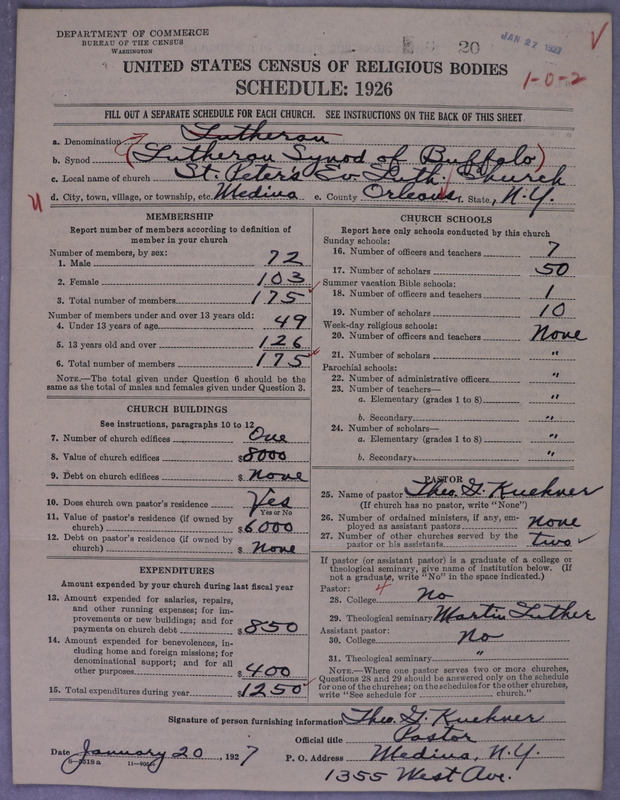 DEPARTMENT OF COMMERCE
BUREAU OF THE CENSUS
WASHINGTON
20
JAN 27 1927
UNITED STATES CENSUS OF RELIGIOUS BODIES
1-0-2
SCHEDULE: 1926
FILL OUT A SEPARATE SCHEDULE FOR EACH CHURCH. SEE INSTRUCTIONS ON THE BACK OF THIS SHEET
a. Denomination Lutheran
b. Synod (Lutheran Synod of Buffalo)
c. Local name of church St. Peter's Ev. Luth. Church
d. City, town, village, or township, etc. Medina e. County Orleans f. State, N.Y.
MEMBERSHIP
Report number of members according to definition of
member in your church
Number of members, by sex:
1. Male 72
2. Female 103
3. Total number of members 175
Number of members under and over 13 years old:
4. Under 13 years of age 49
5. 13 years old and over 126
6. Total number of members 175
NOTE.—The total given under Question 6 should be
the same as the total of males and females given under Question 3.
CHURCH BUILDINGS
See instructions, paragraphs 10 to 12
7. Number of church edifices One
8. Value of church edifices $8000
9. Debt on church edifices $ None
10. Does church own pastor's residence Yes
Yes or No
11. Value of pastor's residence (if owned by
church) $6000
12. Debt on pastor's residence (if owned by
church) $ None
EXPENDITURES
Amount expended by your church during last fiscal year
13. Amount expended for salaries, repairs,
and other running expenses; for im-
provements or new buildings; and for
payments on church debt $850
14. Amount expended for benevolences, in-
cluding home and foreign missions; for
denominational support; and for all
other purposes $400
15. Total expenditures during year $1250
CHURCH SCHOOLS
Report here only schools conducted by this church
Sunday schools:
16. Number of officers and teachers 7
17. Number of scholars 50
Summer vacation Bible schools:
18. Number of officers and teachers 1
19. Number of scholars 10
Week-day religious schools:
20. Number of officers and teachers None
21. Number of scholars "
Parochial schools:
22. Number of administrative officers "
23. Number of teachers—
a. Elementary (grades 1 to 8) "
b. Secondary "
24. Number of scholars—
a. Elementary (grades 1 to 8) "
b. Secondary "
PASTOR
25. Name of pastor Theo. G. Kuehner
(If church has no pastor, write "None")
26. Number of ordained ministers, if any, em-
ployed as assistant pastors none
27. Number of other churches served by the
pastor or his assistants two
If pastor (or assistant pastor) is a graduate of a college or
theological seminary, give name of institution below. (If
not a graduate, write "No" in the space indicated.)
Pastor: 4
28. College No
29. Theological seminary Martin Luther
Assistant pastor:
30. College No
31. Theological seminary "
NOTE.—Where one pastor serves two or more churches,
Questions 28 and 29 should be answered only on the schedule
for one of the churches; on the schedules for the other churches,
write "See schedule for church."
Signature of person furnishing information Theo. G. Kuehner
Official title Pastor
Date January 20, 1927 P. O. Address Medina, N.Y.
1355 West Ave.